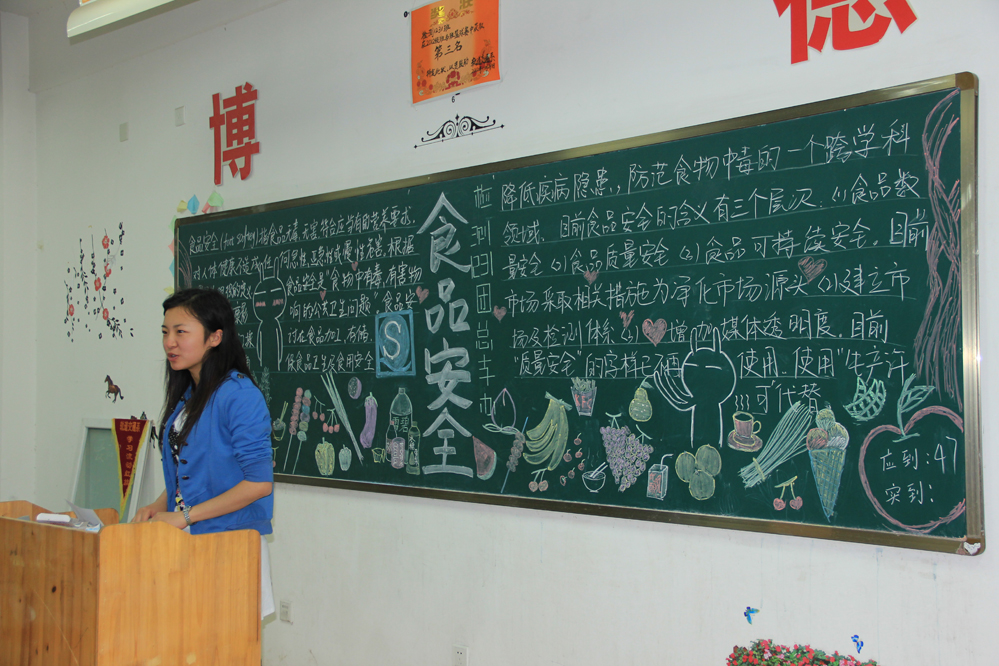 博
德
第三名
食品安全
食品安全(food safety)指食品无毒、无害,符合应当有的营养要求,
对人体健康不造成任何急性、亚急性或慢性危害。根据
食品安全是"食物中有毒,有害物
响的公共卫生问题"。食品安
食品卫生及食用安全
S
雪碧
降低疾病隐患,防范食物中毒的一个跨学科
领域。目前食品安全的含义有三个层次:(1)食品数
量安全 (2)食品质量安全 (3)食品可持续安全。目前
市场采取相关措施为净化市场源头 (2)建立市
场及检测体系 (3)增加媒体透明度。目前
"质量安全"的字样已不再 使用。使用"生产许
可"代替
应到:47
实到: